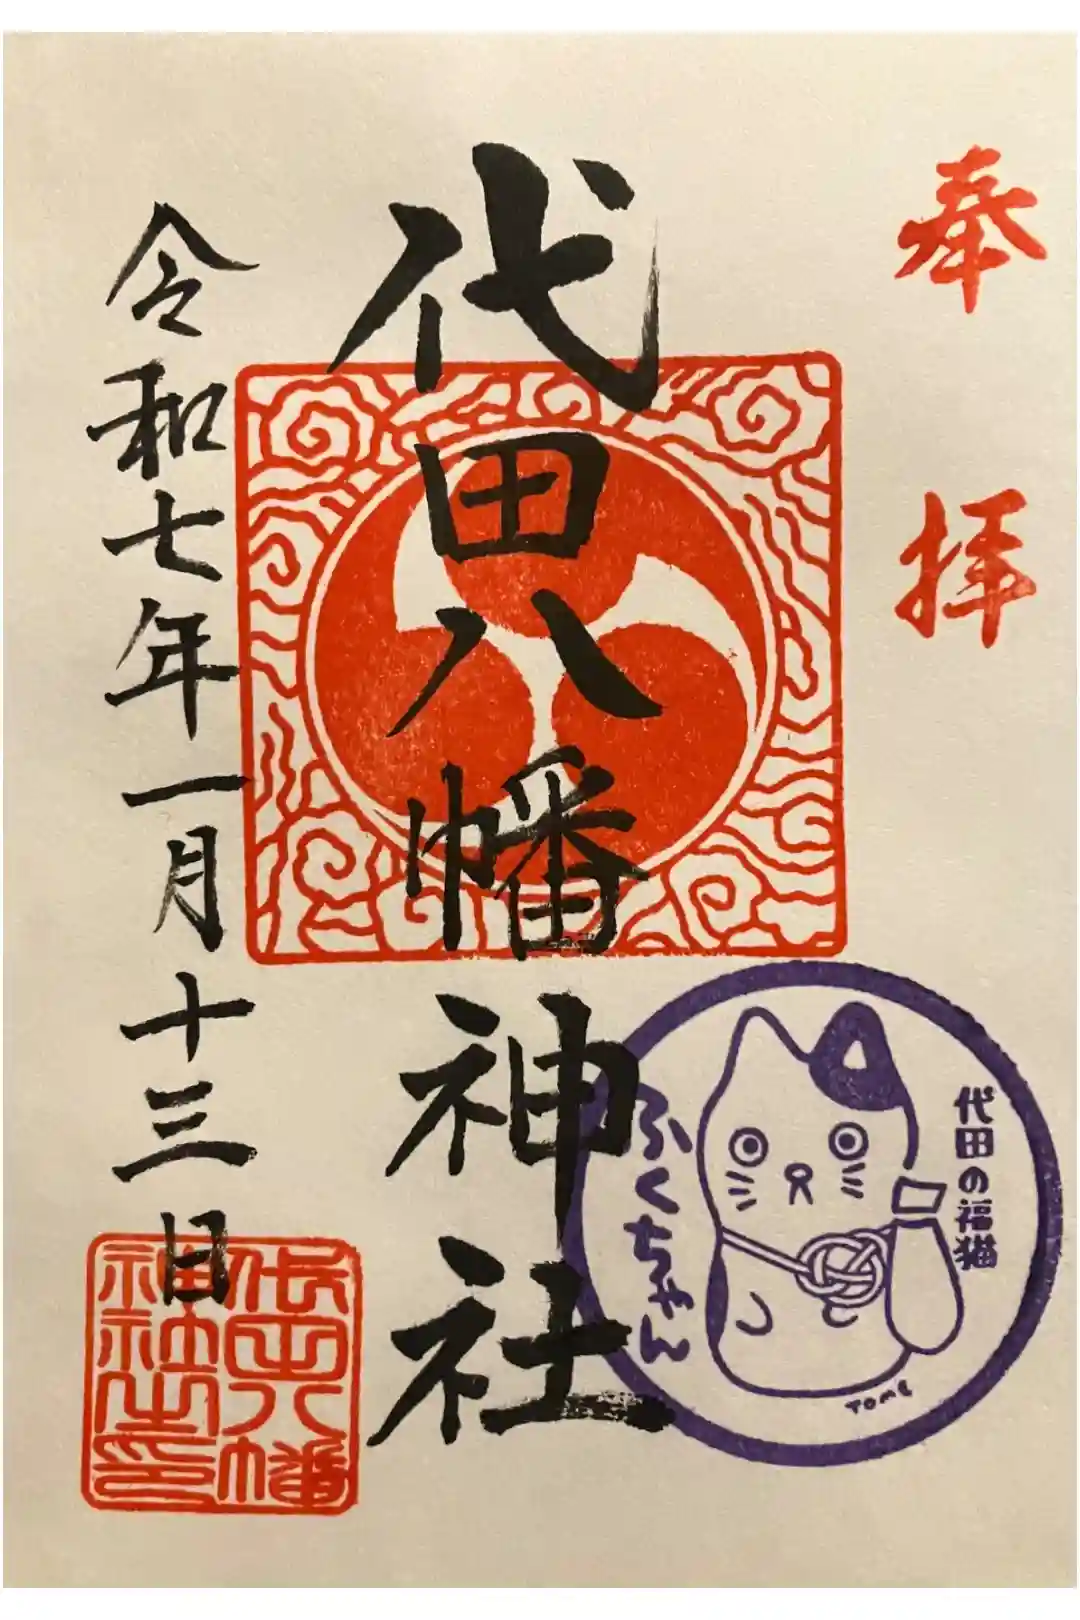 奉拝
代田八幡神社
令和七年一月十三日
代田の福猫
ふくちゃん
TOME
代田八幡
神社之印